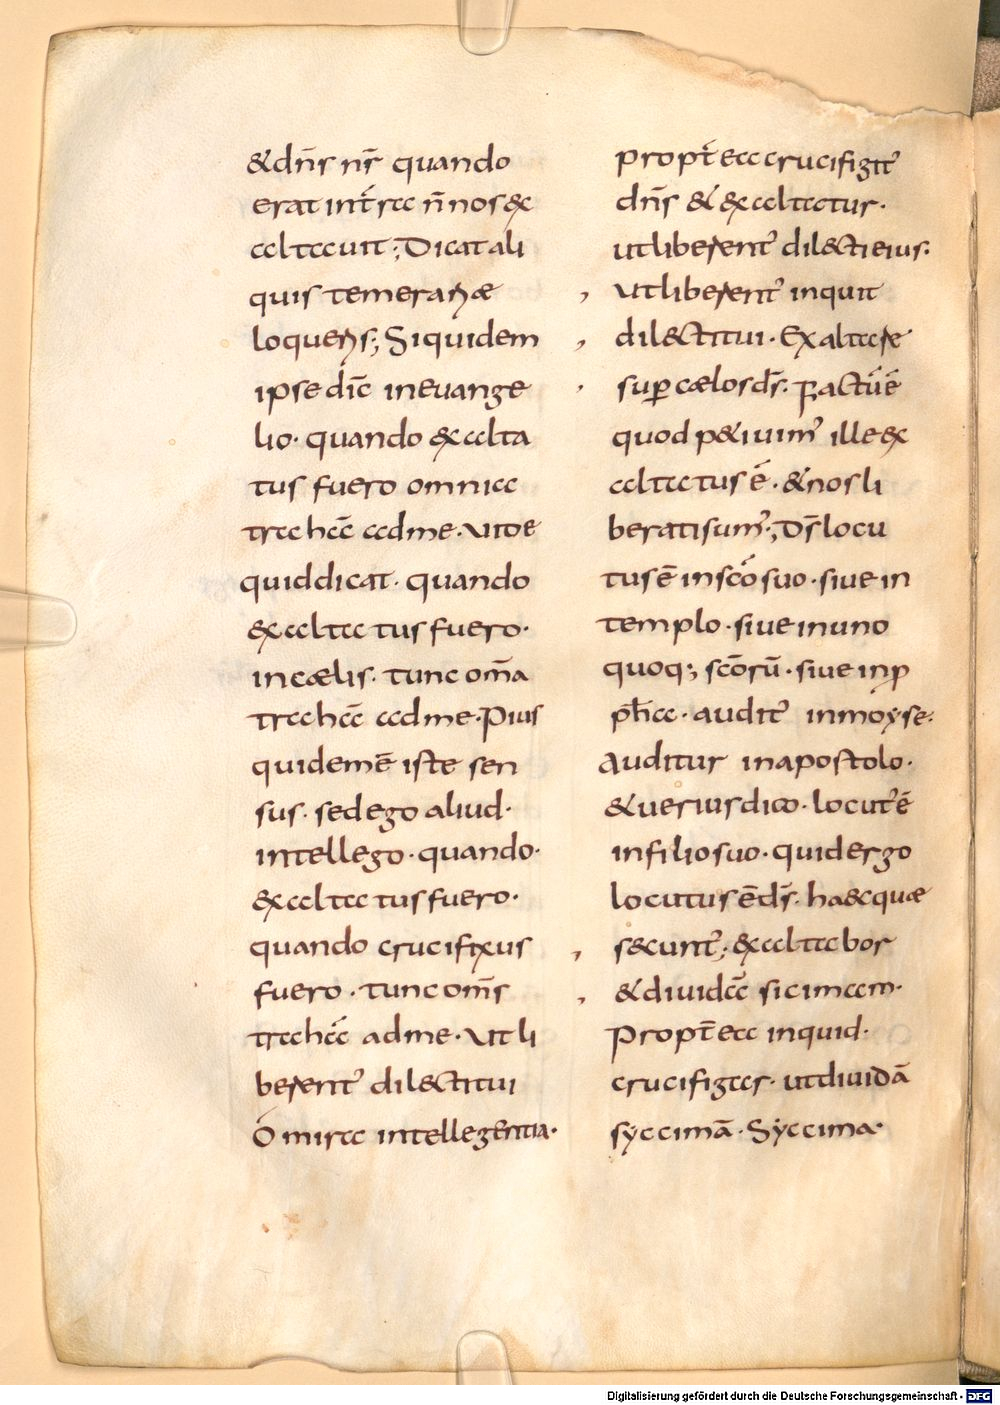 &dn̄s nr̄ quando
erat int̄ra n̄nosex
altauit; Dicat ali
quis temerariae
loquens; Siquidem
ipse dic̄ ineuange
lio· quando exalta
tus fuero omnia
trahā adme· Vide
quiddicat· quando
exaltatus fuero·
incaelis· tunc om̄a
trahā adme· Pius
quidemē iste sen
sus· sedego aliud·
intellego· quando·
exaltatus fuero·
quando crucifixus
fuero· tunc om̄s
trahā adme· Vt li
berent᾽ dil&titui
O mira intellegentia·
propt̄ea crucifigit᾽
dn̄s & exaltatur·
utliberent᾽ dil&tieius·
Vtliberent᾽ inquit
dil&titui· Exaltare
suꝑ caelosds̄· Factūē
quod p&iuim᾽ ille ex
altatus ē· &nosli
beratisum᾽; Ds̄locu
tusē insc̄osuo· siue in
templo· siue inuno
quoq; sc̄orū· siue inꝓ
ph̄a· audit᾽ inmoyse·
Auditur inapostolo·
&ueriusdico· locut᾽ē
infiliosuo· quidergo
locutusēds̄· haecquae
secunt᾽; exaltabor
&diuidā sicimam·
Propt̄ea inquid·
crucifigar· utdiuidā
syccimā· Syccima·
Digitalisierung gefördert durch die Deutsche Forschungsgemeinschaft - DFG